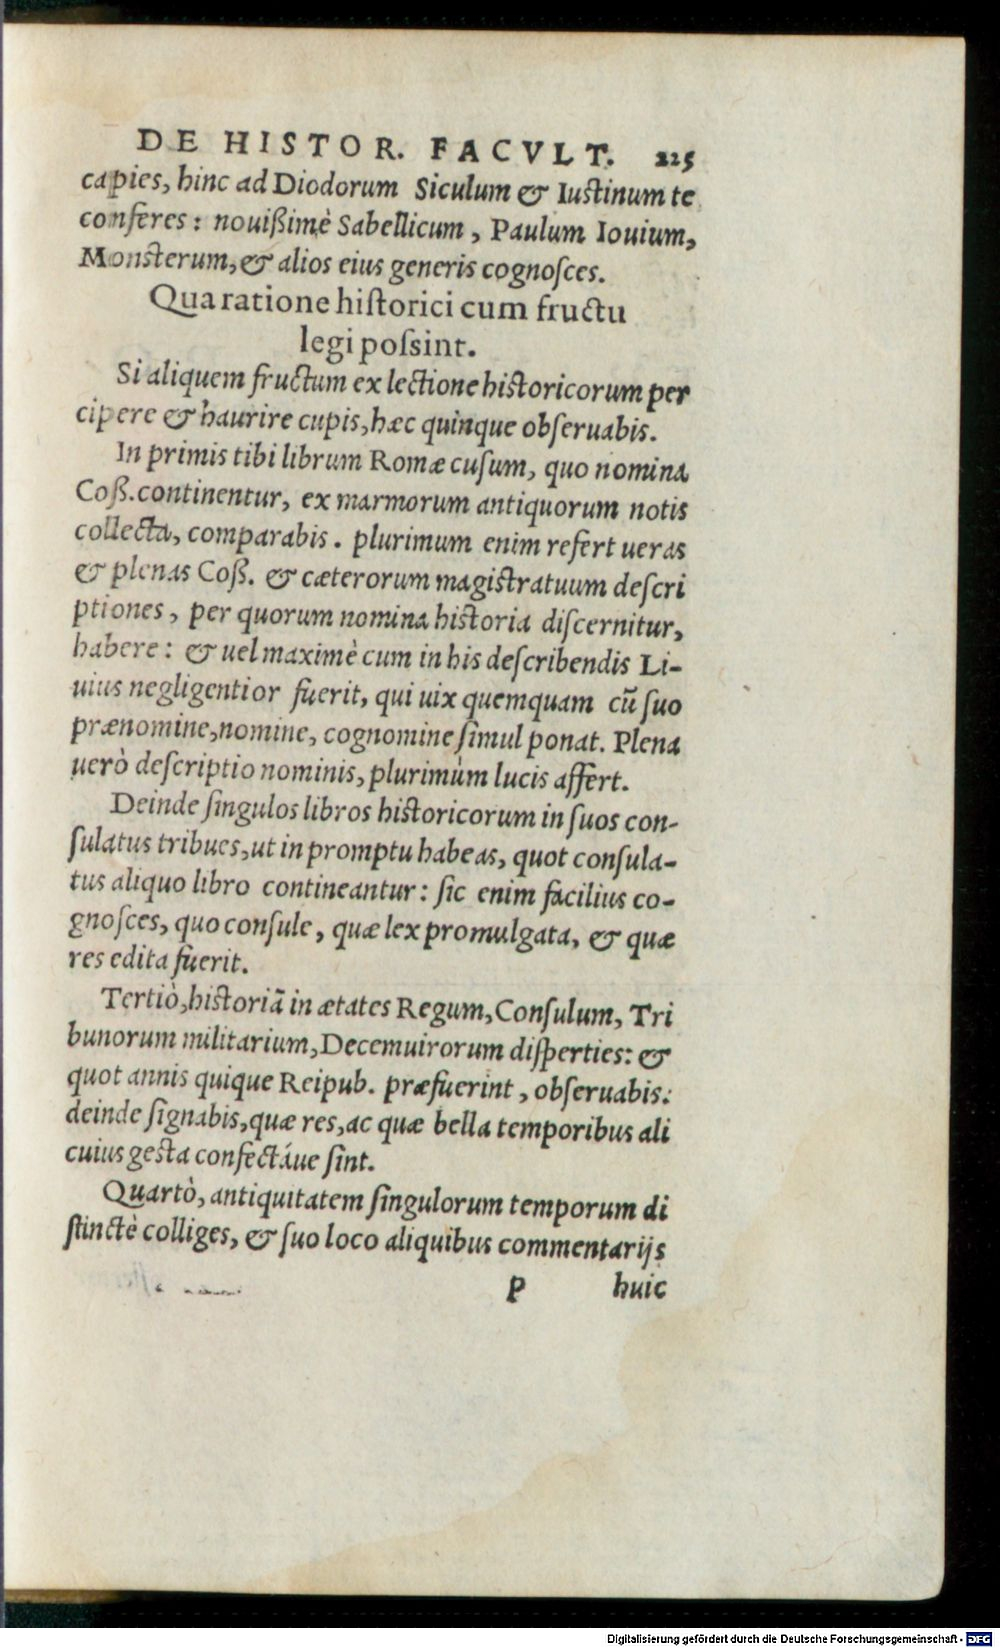 DE HISTOR. FACVLT. 225
capies, hinc ad Diodorum Siculum & Iustinum te
conferes: nouißimè Sabellicum, Paulum Iouium,
Monsterum, & alios eius generis cognoſces.
Qua ratione hiſtorici cum fructu
legi poſsint.
Si aliquem fructum ex lectione historicorum per
cipere & haurire cupis, hæc quinque obſeruabis.
In primis tibi librum Romæ cuſum, quo nomina
Coß. continentur, ex marmorum antiquorum notis
collecta, comparabis. plurimum enim refert ueras
& plenas Coß. & cæterorum magistratuum deſcri
ptiones, per quorum nomina historia diſcernitur,
habere: & uel maximè cum in his deſcribendis Li-
uius negligentior fuerit, qui uix quemquam cū ſuo
prænomine, nomine, cognomine ſimul ponat. Plena
uerò deſcriptio nominis, plurimùm lucis affert.
Deinde ſingulos libros historicorum in ſuos con-
ſulatus tribues, ut in promptu habeas, quot conſula-
tus aliquo libro contineantur: ſic enim facilius co-
gnoſces, quo conſule, quæ lex promulgata, & quæ
res edita fuerit.
Tertiò, historiā in ætates Regum, Conſulum, Tri
bunorum militarium, Decemuirorum diſperties: &
quot annis quique Reipub. præfuerint, obſeruabis:
deinde ſignabis, quæ res, ac quæ bella temporibus ali
cuius gesta confectáue ſint.
Quartò, antiquitatem ſingulorum temporum di
ſtinctè colliges, & ſuo loco aliquibus commentarijs
P huic
Digitalisierung gefördert durch die Deutsche Forschungsgemeinschaft - DFG